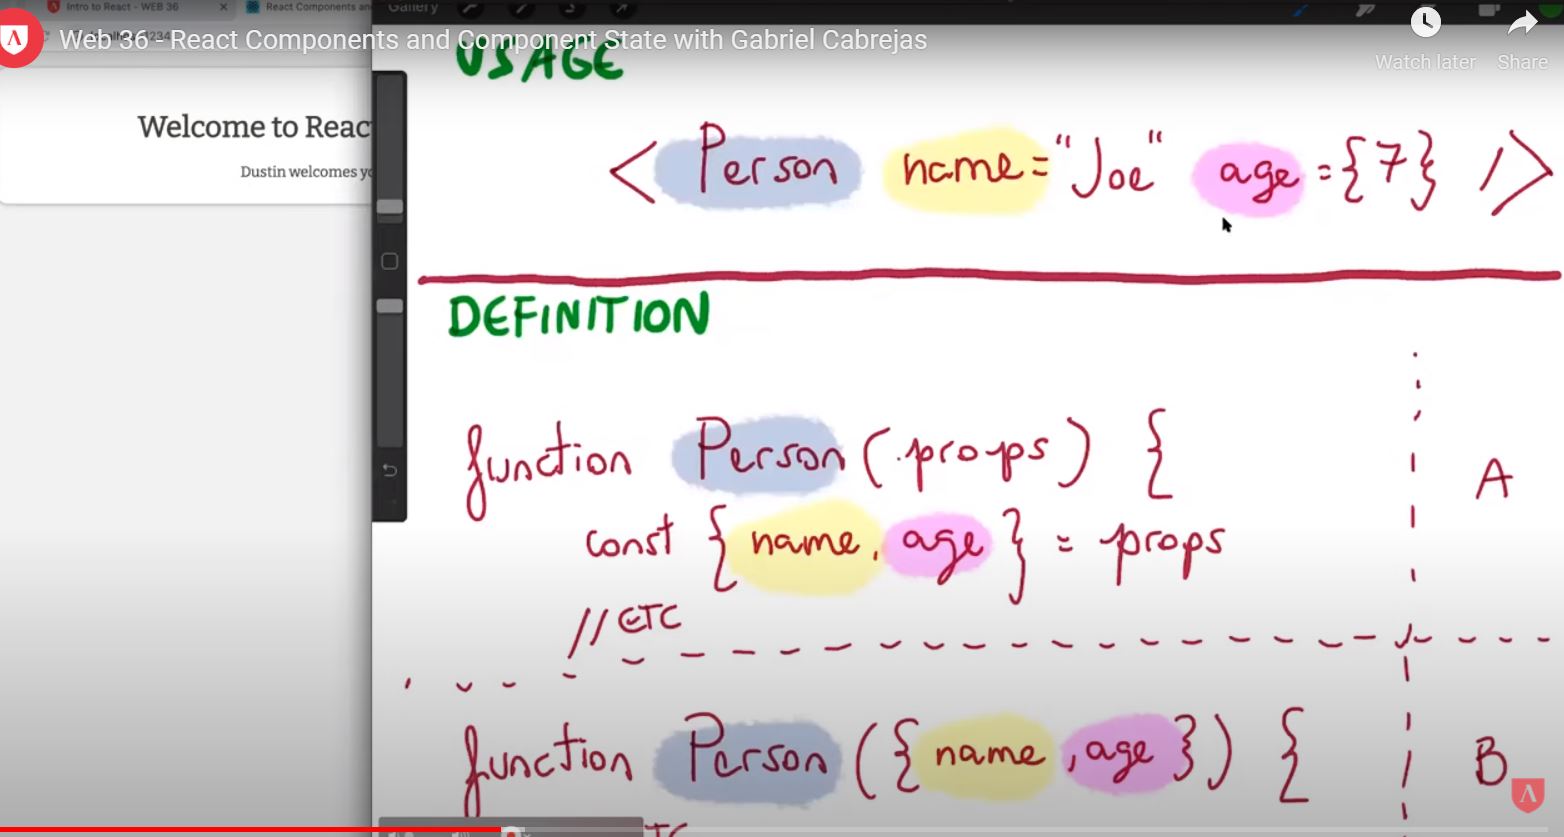 Intro to React - WEB 36
React Components an
Gallery
Web 36 - React Components and Component State with Gabriel Cabrejas
Watch later
Share
Welcome to Reac
Dustin welcomes yo
USAGE
<Person name="Joe" age={7} />
DEFINITION
function Person(props) {
const {name, age} = props
// ETC
A
function Person({name, age}) {
B
TC